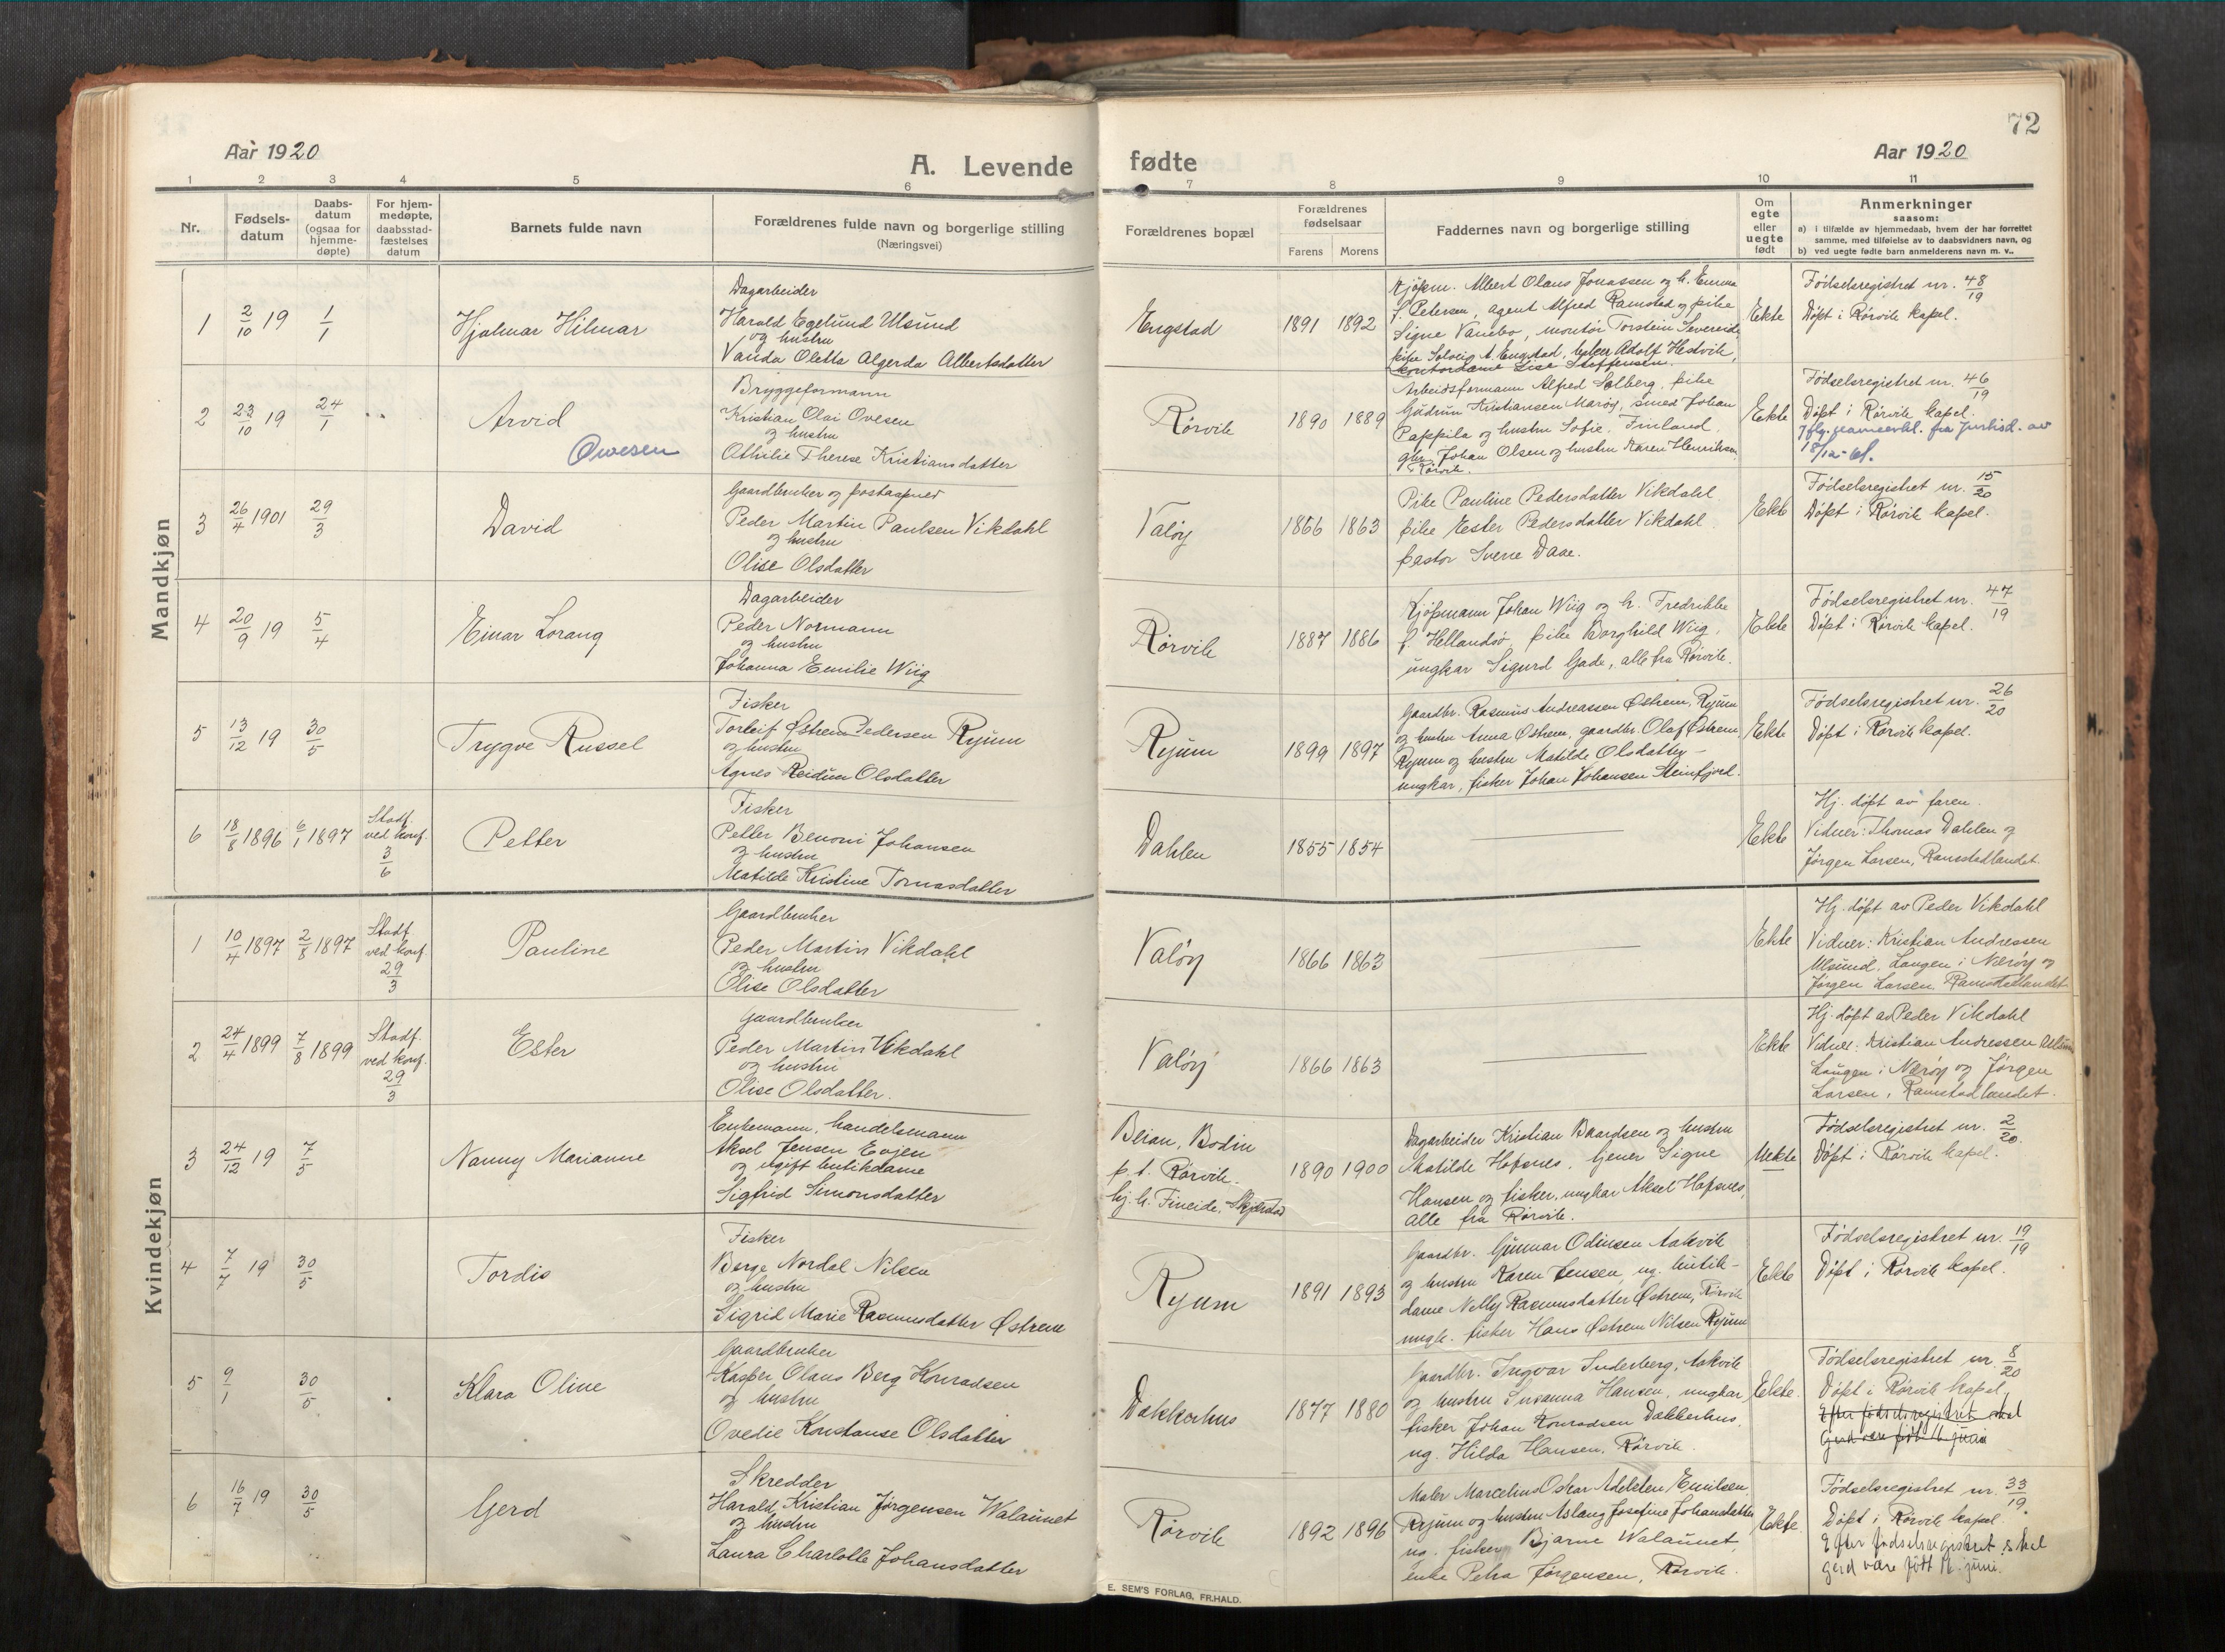 72
Aar 1920
A. Levende
fødte
Aar 1920
1 2 3 4 5 6 7 8 9 10 11
Nr.
Fødsels-
datum
Daabs-
datum
(ogsaa for
hjemme-
døpte)
For hjem-
medøpte,
daabsstad-
fæstelses
datum
Barnets fulde navn
Forældrenes fulde navn og borgerlige stilling
(Næringsvei)
Forældrenes bopæl
Forældrenes
fødselsaar
Farens Morens
Faddernes navn og borgerlige stilling
Om
egte
eller
uegte
født
Anmerkninger
saasom:
a) i tilfælde av hjemmedaab, hvem der har forrettet
samme, med tilføielse av to daabsvidners navn, og
b) ved uegte fødte barn anmelderens navn m. v..
Mandkjøn
1 2/10 19 1/1 Hjalmar Hilmar
Dagarbeider
Harald Egelund Ulsund
og hustru
Vanda Oletta Algerda Albertsdatter
Engstad 1891 1892
Kjøpm. Albert Olaus Jonassen og h. Emma
f. Petersen, agent Alfred Ramstad og pike
Signe Vandbo, montør Torstein Severeide,
pike Solveig A. Engstad, Adolf Hestvik,
kontordame Lise Steffensen.
Ekte
Fødselsregistret nr. 48/19
Døpt i Rørvik kapel.
2 23/10 19 24/1 Arvid
Owesen
Bryggeformann
Kristian Olai Ovesen
og hustru
Othilie Therese Kristiansdatter
Rørvik 1890 1889
Arbeidsformann Alfred Solberg, pike
Gudrun Kristiansen Marøy, smed Johan
Pappila og hustru Sofie. Finland.
gbr. Johan Olsen og hustru Karen Henriksen
Rørvik.
Ekte
Fødselsregistret nr. 46/19
Døpt i Rørvik kapel.
Iflg. navnemeld. fra Justisd. av
18/12-61.
3 26/4 1901 29/3 David
Gaardbruker og postaapner
Peder Martin Paulsen Vikdahl
og hustru
Olise Olsdatter
Valøy 1866 1863
Pike Pauline Pedersdatter Vikdahl
pike Ester Pedersdatter Vikdahl
pastor Sverre Daae.
Ekte
Fødselsregistret nr. 15/20
Døpt i Rørvik kapel.
4 20/9 19 5/4 Einar Lorang
Dagarbeider
Peder Normann
og hustru
Johanna Emilie Wiig
Rørvik 1887 1886
Kjøpmann Johan Wiig og h. Fredrikke
f. Hellandsø pike Borghild Wiig,
ungkar Sigurd Gade, alle fra Rørvik.
Ekte
Fødselsregistret nr. 47/19
Døpt i Rørvik kapel.
5 13/12 19 30/5 Trygve Russel
Fisker
Torleif Østrem Pedersen Ryum
og hustru
Agnes Reidun Olsdatter
Ryum 1899 1897
Gaardbr. Rasmus Andreassen Østrem, Ryum
og hustru Anna Østrem, gaardbr. Olaf Østrem
Ryum og hustru Matilde Olsdatter –
ungkar, fisker Johan Johansen Steinfjord.
Ekte
Fødselsregistret nr. 26/20
Døpt i Rørvik kapel.
6 18/8 1896 6/1 1897 Stadf.
ved konf.
3/6
Petter
Fisker
Petter Benoni Johansen
og hustru
Matilde Kristine Tomasdatter
Dahlen 1855 1854
Ekte
Hj. døpt av faren.
Vidner: Thomas Dahlen og
Jørgen Larsen, Ramstadlandet.
Kvindekjøn
1 10/4 1897 2/8 1897 Stadf
ved konf
29/3
Pauline
Gaardbruker
Peder Martin Vikdahl
og hustru
Olise Olsdatter
Valøy 1866 1863
Ekte
Hj. døpt av Peder Vikdahl
Vidner: Kristian Andressen
Ulsund, Langen i Nærøy og
Jørgen Larsen, Ramstadlandet
2 24/4 1899 7/8 1899 Stadf.
ved konf.
29/3
Ester
Gaardbruker
Peder Martin Vikdahl
og hustru
Olise Olsdatter.
Valøy 1866 1863
Ekte
Hj. døpt av Peder Vikdahl
Vidner: Kristian Andressen Ulsund
Langen i Nærøy og Jørgen
Larsen, Ramstadlandet.
3 24/12 19 7/5 Nanny Marianne
Enkemann, handelsmann
Aksel Jensen Evjen
og ugift butikdame
Sigfrid Simonsdatter
Beian, Bodin
p. t. Rørvik.
hj. h. Fineide, Skjerstad
1890 1900
Dagarbeider Kristian Baardsen og hustru
Matilde Hofsnes, tjener Signe
Hansen og fisker, ungkar Aksel Hofsnes,
alle fra Rørvik.
Uekte
Fødselsregistret nr. 2/20.
Døpt i Rørvik kapel.
4 7/7 19 30/5 Tordis
Fisker
Børge Nordal Nilsen
og hustru
Sigrid Marie Rasmusdatter Østrem
Ryum 1891 1893
Gaardbr. Gunnar Odinsen Aakvik
og hustru Karen Jensen, ug. butik-
dame Nelly Rasmusdatter Østrem, Rørvik
ungk. fisker Hans Østrem Nilsen Ryum
Ekte
Fødselsregistret nr. 19/19
Døpt i Rørvik kapel.
5 9/1 30/5 Klara Oline
Gaardbruker
Kasper Olaus Berg Konradsen
og hustru
Ovedie Konstanse Olsdatter
Dækkerhus 1877 1880
Gaardbr. Ingvar Suderberg, Aakvik
og hustru Susanna Hansen, ungkar,
fisker Johan Konradsen Dækkerhus,
ug. Hilda Hansen, Rørvik.
Ekte.
Fødselsregistret nr. 8/20
Døpt i Rørvik kapel,
Efter fødselsregistret skal
Gerd være født 16 juni
6 16/7 19 30/5 Gerd
Skredder
Harald Kristian Jørgensen Walaunet
og hustru
Laura Charlotte Johansdatter
Rørvik 1892 1896
Maler Marcelius Oskar Emilsen,
Ryum og hustru Aslaug Josefine Johansdatter
ug. fisker Bjarne Walaunet,
enke Petra Jørgensen, Rørvik.
Ekte.
Fødselsregistret nr. 33/19.
Døpt i Rørvik kapel.
Efter fødselsregistret skal
Gerd være født 16. juni.
E. SEM'S FORLAG, FR.HALD.